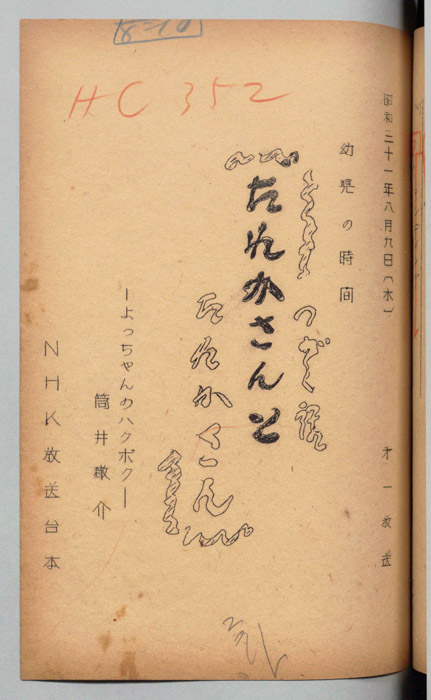 8-10
HC352
昭和三十一年八月九日(木)　才一放送
幼児の時間
つづく話
たれかさんと
たれかさん
―よっちゃんのハクボク―
筒井敬介
NHK放送台本